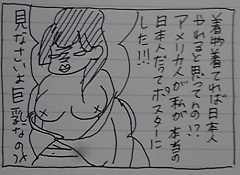 着物着てれば日本人
やれると思ってんの!?
アメリカ人が私が本当の
日本人だってポスターに
した!!!
見なさいよ巨乳なのよ